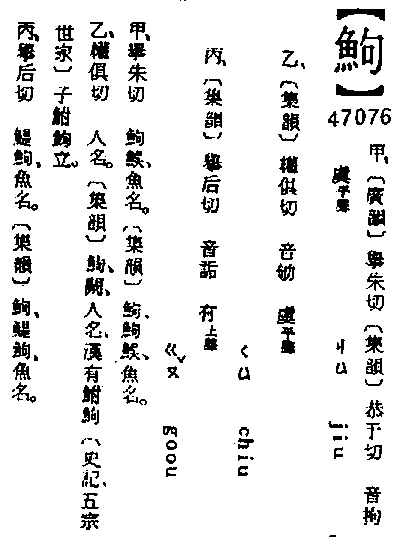 【鮈】
47076
甲、〔廣韻〕擧朱切〔集韻〕恭于切 音拘
虞平聲 ㄐㄩ jiu
乙、〔集韻〕權俱切 音劬 虞平聲
ㄑㄩ chiu
丙、〔集韻〕擧后切 音詬 有上聲
ㄍㄡˇ goou
甲、擧朱切 鮈鯸、魚名。〔集韻〕鮈、鮈鯸、魚名。
乙、權俱切 人名。〔集韻〕鮈、闕、人名、漢有鮒鮈〔史記、五宗
世家〕子鮒鮈立。
丙、擧后切 鯷鮈、魚名。〔集韻〕鮈、鯷鮈、魚名。